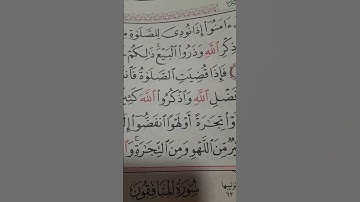 ءَامَنُوٓا۟ إِذَا نُودِىَ لِلصَّلَوٰةِ مِن
ذِكْرِ ٱللَّهِ وَذَرُوا۟ ٱلْبَيْعَ ۚ ذَٰلِكُمْ
فَإِذَا قُضِيَتِ ٱلصَّلَوٰةُ
فَضْلِ ٱللَّهِ وَٱذْكُرُوا۟ ٱللَّهَ
تِجَـٰرَةً أَوْ لَهْوًا ٱنفَضُّوٓا۟
مِّنَ ٱللَّهْوِ وَمِنَ ٱلتِّجَـٰرَةِ ۚ
سُورَةُ المُنَافِقُونَ